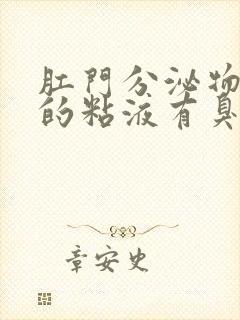 肛門分泌物
的粘液有臭
章安史